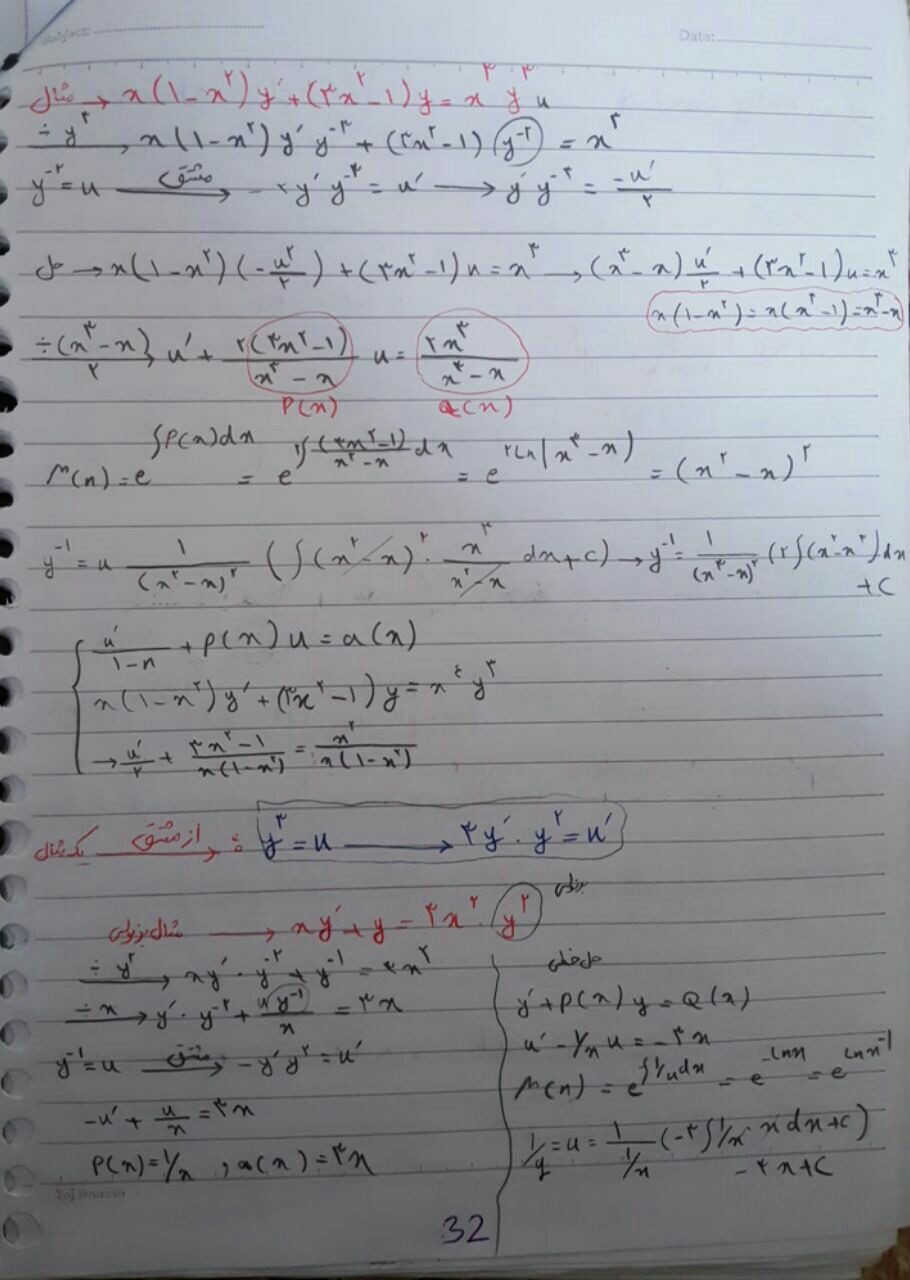 Subject: Date:
مثال → x(1-x²)y' + (۳x²-1)y = x³y³ u
÷y³ → x(1-x²)y'y⁻³ + (۳x²-1)y⁻² = x³
y⁻² = u مشتق → -۲y'y⁻³ = u' → y'y⁻³ = -u'/۲
حل → x(1-x²)(-u'/۲) + (۳x²-1)u = x³ → (x³-x)u'/۲ + (۳x²-1)u = x³
x(1-x²) = x(x²-1) = x³-x
÷(x³-x)/۲ → u' + ۲(۳x²-1)/(x³-x) u = ۲x³/(x³-x)
P(x) Q(x)
M(x) = e^∫P(x)dx = e^۲∫(۳x²-1)/(x³-x) dx = e^۲Ln|x³-x| = (x³-x)²
y⁻¹ = u 1/(x³-x)² (∫(x³-x)². x³/(x³-x) dx+c) → y⁻¹ = 1/(x³-x)² (۲∫(x³-x³)dx
+C
u'/(1-n) + P(x)u = Q(x)
x(1-x²)y' + (۳x²-1)y = x³y³
→ u'/۲ + (۳x²-1)/(x(1-x²)) = x³/(x(1-x²))
یک مثال از مشتق → : y³ = u → ۳y'.y² = u'
برنولی
مثال برنولی → xy'+y = ۳x².y²
÷y² → xy'.y⁻²+y⁻¹ = ۳x²
÷x → y'.y⁻²+ u y⁻¹/x = ۳x
y⁻¹ = u مشتق → -y'y² = u'
-u' + u/x = ۳x
P(x) = 1/x , Q(x) = ۳x
حل خطی
y'+P(x)y = Q(x)
u' - 1/x u = -۳x
M(x) = e^∫1/u dx = e^-Lnx = e^Lnx⁻¹
1/y = u = 1/(1/x) (-۳∫1/x x dx+c)
-۳x+C
Taj Danesh
32